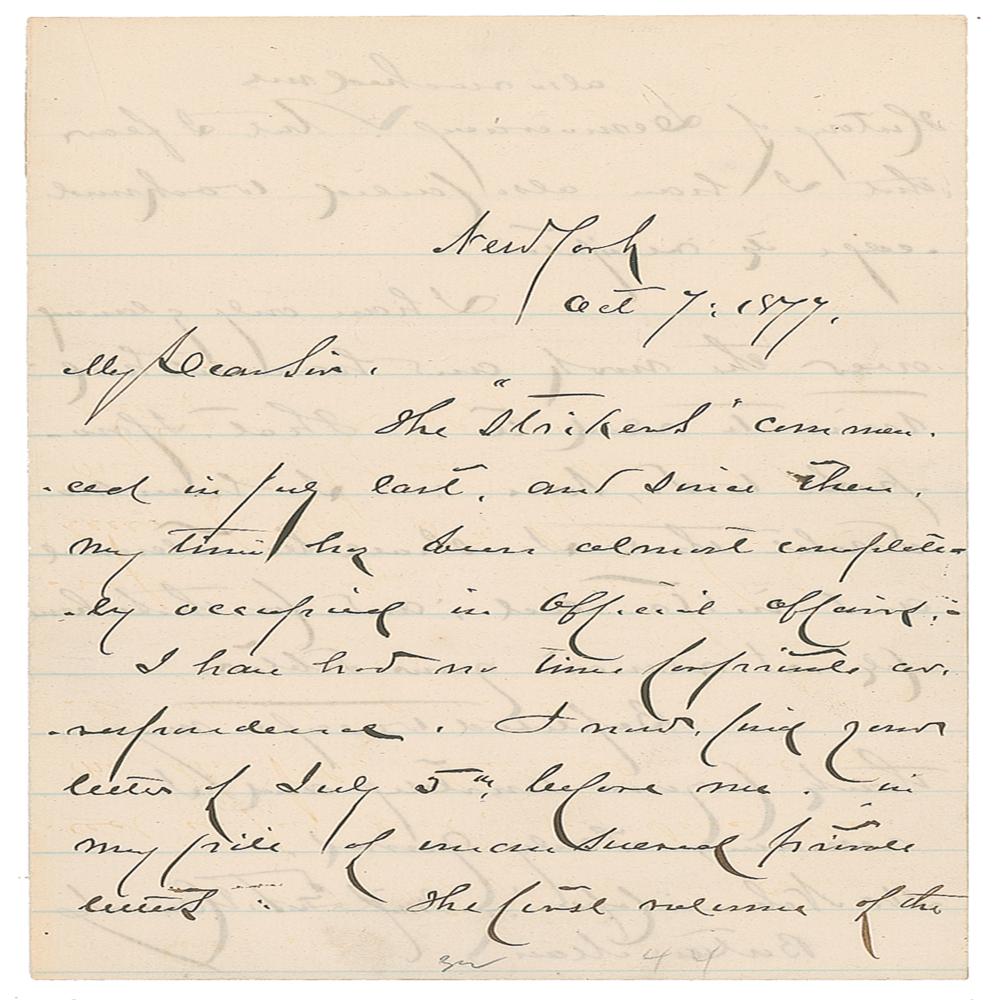 New York
Oct 7, 1877.
My Dear Sir.
The "Strikers" commen.
.ced in July last, and since then,
my time has been almost complete=
.ly occupied in official affairs.=
I have had no time for private cor.
.respondence. I now, find your
letter of July 5th, before me. in
my pile of unanswered private
letters: The first volume of the